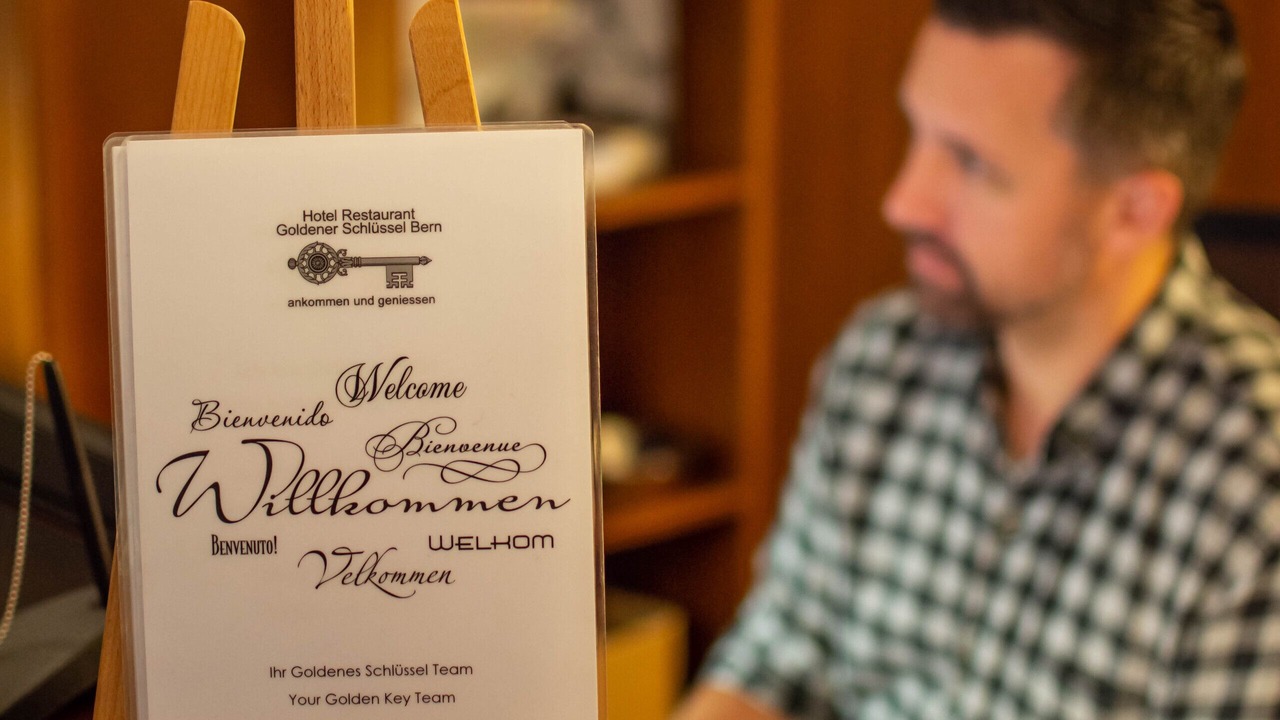 Hotel Restaurant
Goldener Schlüssel Bern
ankommen und geniessen
Welcome
Bienvenido
Bienvenue
Willkommen
BENVENUTO!
WELKOM
Velkommen
Ihr Goldenes Schlüssel Team
Your Golden Key Team